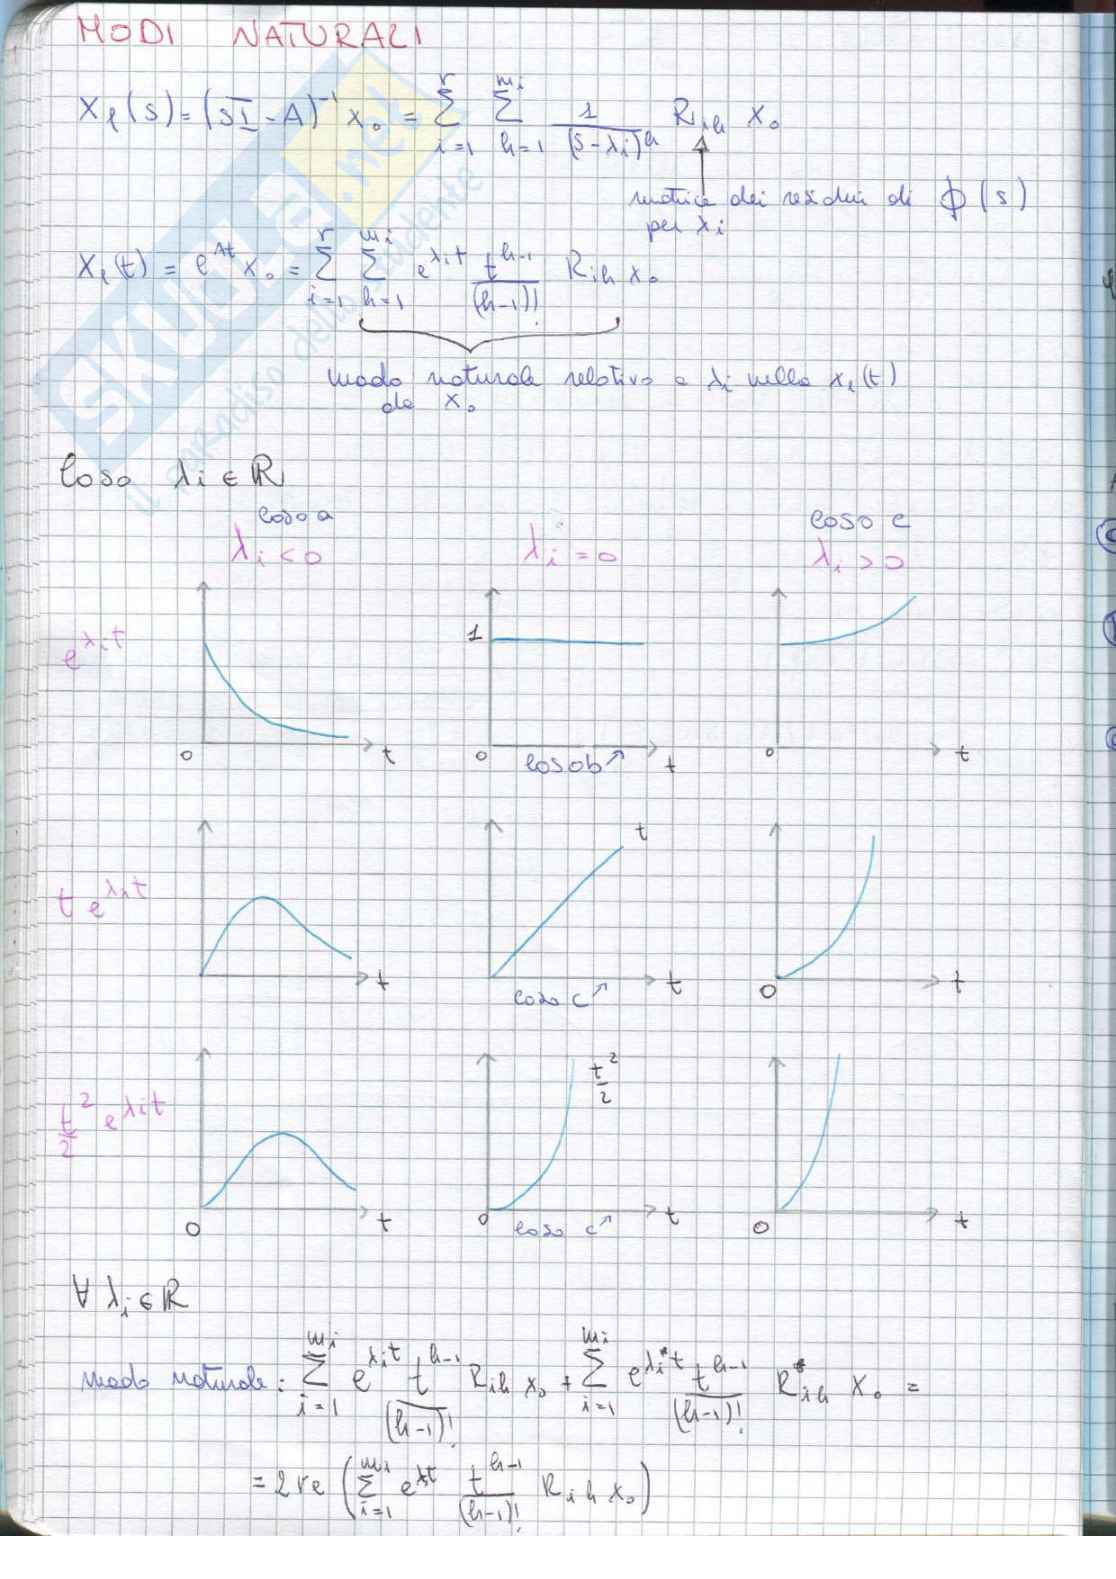 MODI NATURALI
Xℓ(s) = (sI - A)⁻¹ x₀ = Σ_{i=1}^{r} Σ_{h=1}^{mi} 1/(s-λi)^h R_{ih} x₀
matrice dei residui di Φ(s)
per λi
Xℓ(t) = e^{At} x₀ = Σ_{i=1}^{r} Σ_{h=1}^{mi} e^{λit} t^{h-1}/(h-1)! R_{ih} x₀
modo naturale relativo a λi nella xℓ(t)
da x₀
Caso λi ∈ ℝ
caso a
caso c
λi < 0
λi = 0
λi > 0
e^{λit}
1
0
t
0
caso b ↗
t
0
t
t e^{λit}
t
t
caso c ↗
t
0
t
t²/2 e^{λit}
t²/2
0
t
0
caso c ↗
t
0
t
∀ λi ∈ ℝ
modo naturale: Σ_{i=1}^{mi} e^{λit} t^{h-1}/(h-1)! R_{ih} x₀ + Σ_{i=1}^{mi} e^{λi*t} t^{h-1}/(h-1)! R*_{ih} x₀ =
= 2 re ( Σ_{i=1}^{mi} e^{λt} t^{h-1}/(h-1)! R_{ih} x₀ )
SKUOLA.net
il paradiso dello studente